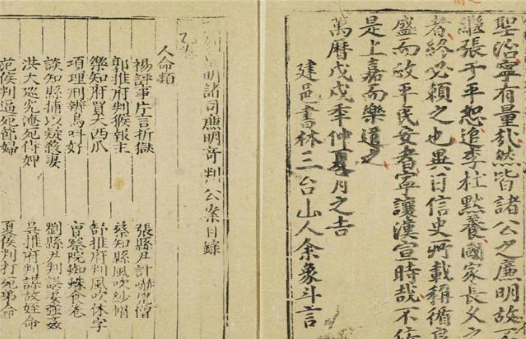 聖治寧有量哉然皆諸公之廉明故
繼張于平恕追李杜點養國家長久之
者終必賴之也異日信史所載稱循良
盛而政平民安者寧讓漢宣時哉不佞
是上嘉而樂道之
萬曆戊戌季仲夏月之吉
建邑書林三台山人余象斗言
明諸司廉明奇判公案目錄
人命類
楊評事片言折獄
張縣尹計嚇凶僧
郭推府判猴報主
蔡知縣風吹紗帽
樂知府買大西瓜
舒推府判風吹休字
項理刑辨鳥叫好
曾察院蜘蛛食卷
談知縣捕以疑殺妻
劉縣尹判誤妻強姦
洪大巡究淹死侍婢
吳推府判謀故姪命
范侯判逼死節婦
夏侯判打死弟命